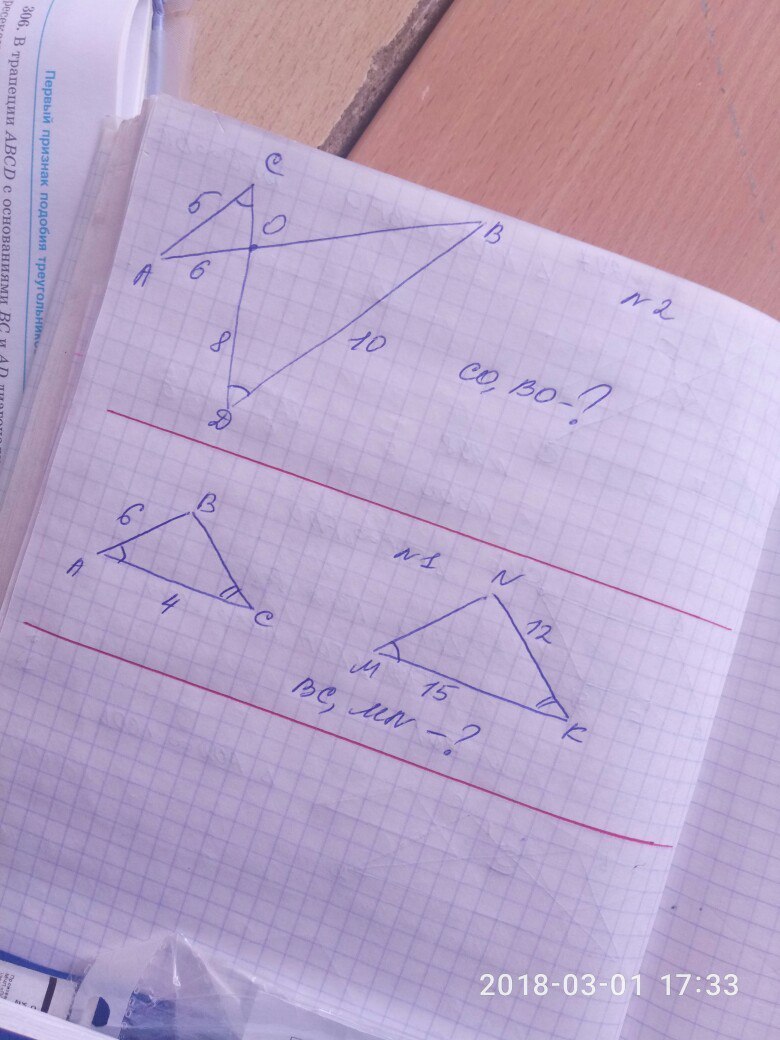 306. В трапеции ABCD с основаниями BC и AD диагонали
Первый признак подобия треугольников
C
5
O
A
6
B
N 2
8
10
CO, BO - ?
D
6
B
A
4
C
N 1
N
12
M
15
K
BC, MN - ?
2018-03-01 17:33